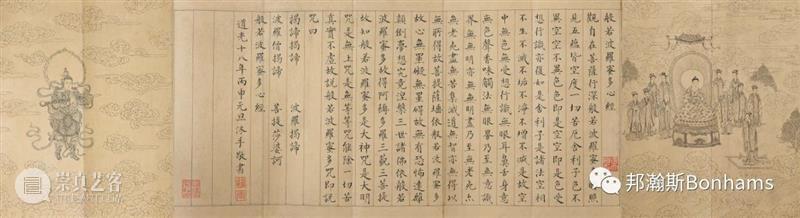 般若波羅蜜多心經
觀自在菩薩行深般若波羅蜜多時照
見五蘊皆空度一切苦厄舍利子色不
異空空不異色色即是空空即是色受
想行識亦復如是舍利子是諸法空相
不生不滅不垢不淨不增不減是故空
中無色無受想行識無眼耳鼻舌身意
無色聲香味觸法無眼界乃至無意識
界無無明亦無無明盡乃至無老死亦
無老死盡無苦集滅道無智亦無得以
無所得故菩提薩埵依般若波羅蜜多
故心無罣礙無罣礙故無有恐怖遠離
顛倒夢想究竟涅槃三世諸佛依般若
波羅蜜多故得阿耨多羅三藐三菩提
故知般若波羅蜜多是大神咒是大明
咒是無上咒是無等等咒能除一切苦
真實不虛故說般若波羅蜜多咒即說
咒曰
揭諦揭諦 波羅揭諦
波羅僧揭諦 菩提莎婆訶
般若波羅蜜多心經
道光十八年丙申元旦沐手敬書
崇真艺客
TRUEART
邦瀚斯Bonhams